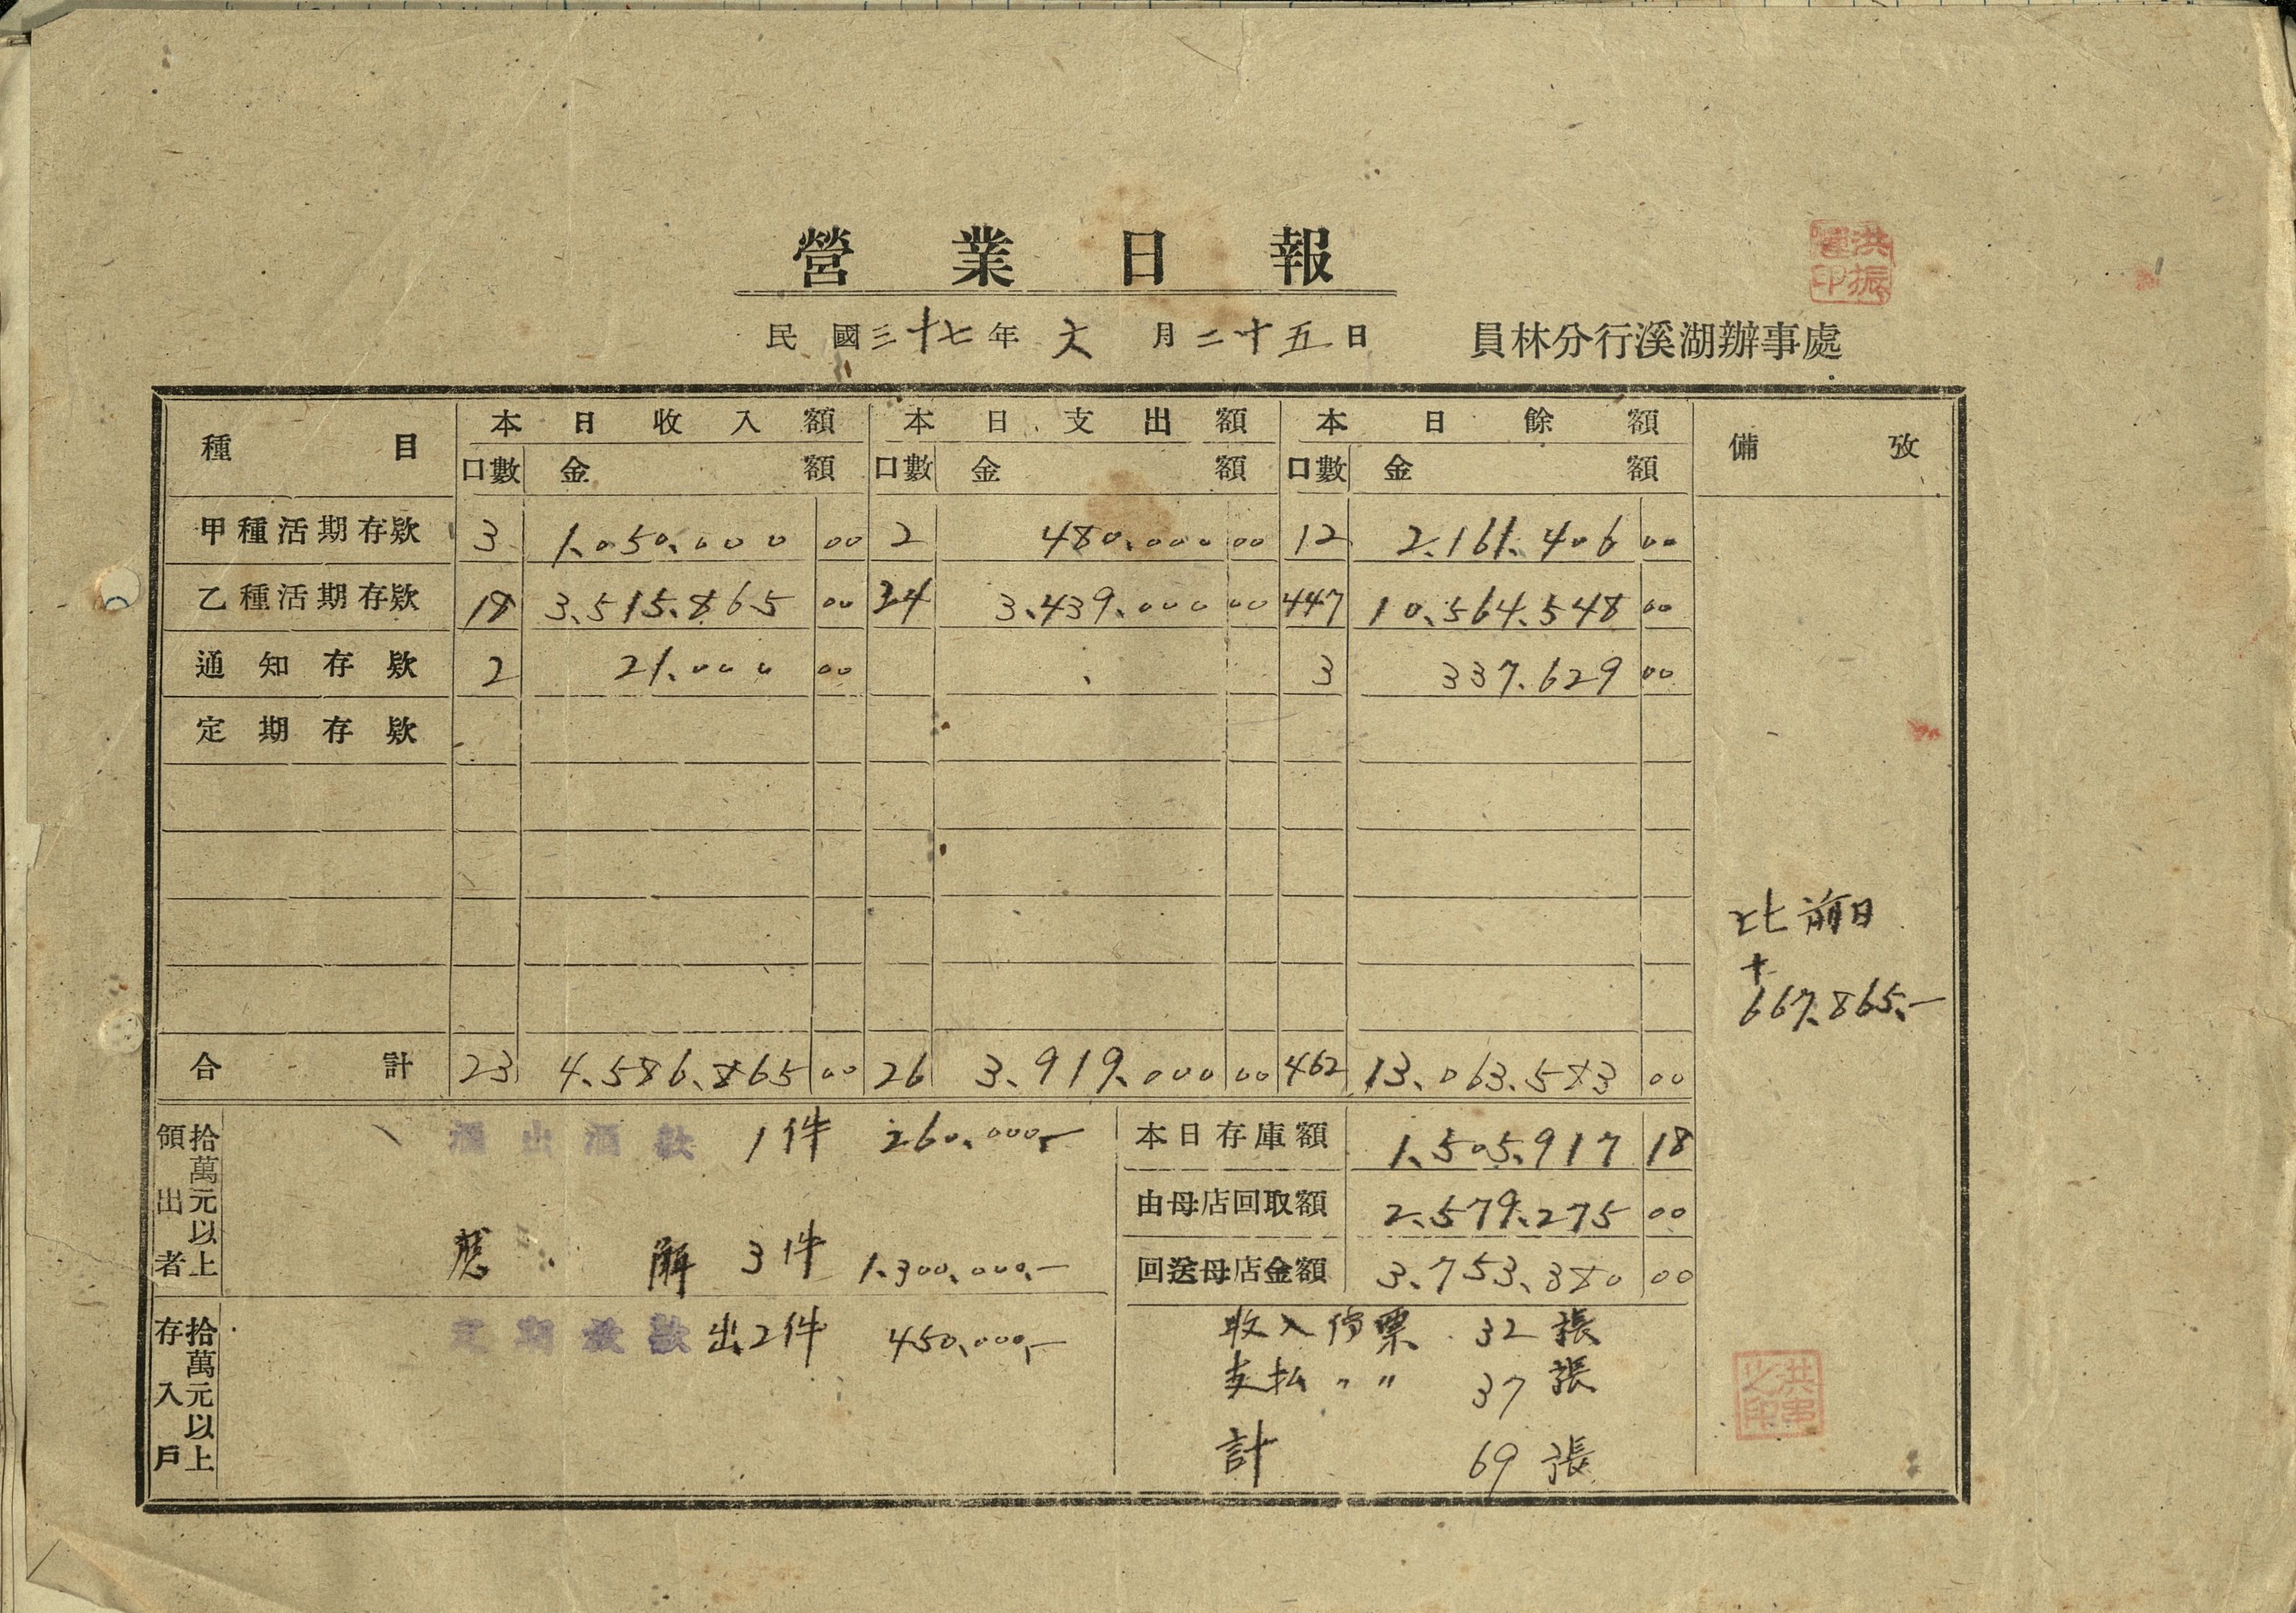 營業日報
民國三十七年六月二十五日 員林分行溪湖辦事處
洪振 印
種目 本日收入額 本日支出額 本日餘額 備攷
口數 金額 口數 金額 口數 金額
甲種活期存欵 3 1.050.000 00 2 480.000 00 12 2.161.406 00
乙種活期存欵 18 3.515.865 00 24 3.439.000 00 447 10.564.548 00
通知存欵 2 21.000 00 3 337.629 00
定期存欵
比前日
+
667.865.-
合計 23 4.586.865 00 26 3.919.000 00 462 13.063.583 00
拾萬元以上領出者
匯出匯款 1件 260.000.-
應解 3件 1.300.000.-
拾萬元以上存入戶
定期放款出2件 450.000.-
本日存庫額 1.505.917 18
由母店回取額 2.579.275 00
回送母店金額 3.753.380 00
收入傳票 32張
支払〃〃 37張
計 69張